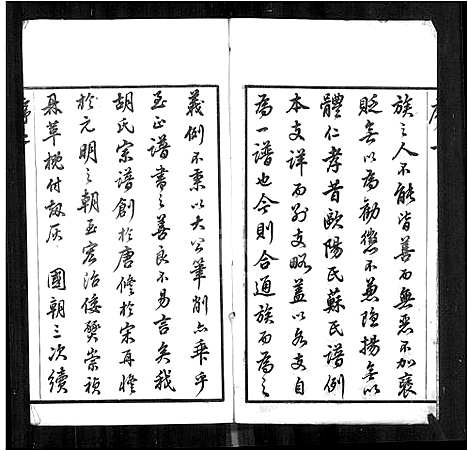 序一
族之人不能皆善而無惡不加褒
貶無以為勸懲不兼隱揚無以
體仁孝昔歐陽氏蘇氏譜例
本支詳而別支略蓋以各支自
為一譜也今則合通族而為之
義例不秉以大公筆削亦乖乎
至正譜書之善良不易言矣我
胡氏宗譜創於唐脩於宋再脩
於元明之朝至宏治倭燹崇禎
兵草槐付劫灰 國朝三次續